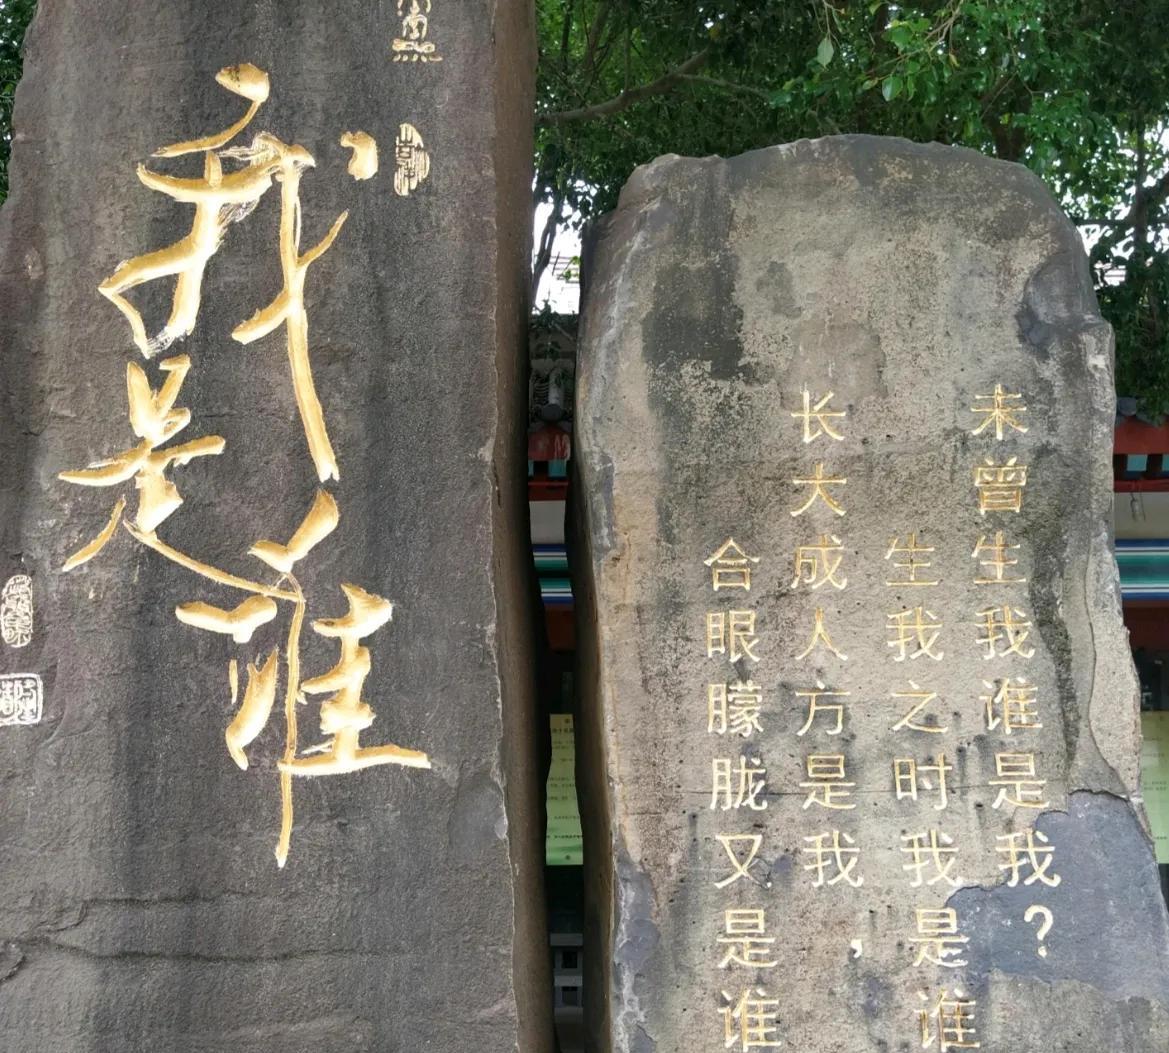 我是谁
未曾生我谁是我？
生我之时我是谁
长大成人方是我，
合眼朦胧又是谁